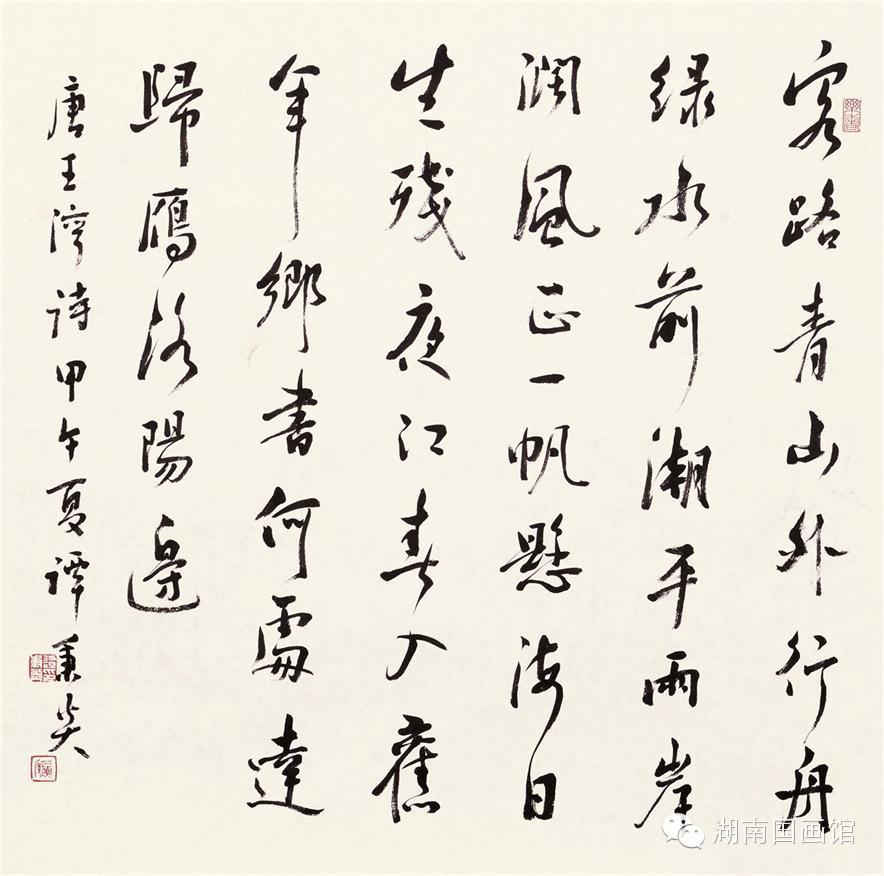 客路青山外行舟
绿水前潮平兩岸
濶風正一帆懸海日
生残夜江春入舊
年鄉書何處達
歸鴈洛陽邊
唐王湾诗甲午夏谭秉炎
湖南国画馆